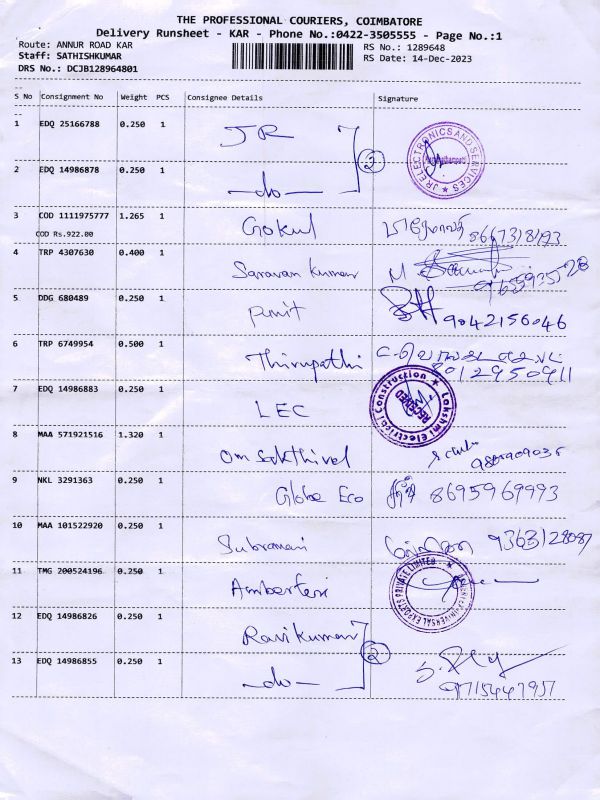 THE PROFESSIONAL COURIERS, COIMBATORE
Delivery Runsheet - KAR - Phone No.:0422-3505555 - Page No.:1
Route: ANNUR ROAD KAR
RS No.: 1289648
Staff: SATHISHKUMAR
RS Date: 14-Dec-2023
DRS No.: DCJB128964801
S No Consignment No Weight PCS Consignee Details Signature
1 EDQ 25166788 0.250 1 JR
2
JR ELECTRONICS AND SERVICES
2 EDQ 14986878 0.250 1 -do-
3 COD 1111975777 1.265 1 Gokul
COD Rs.922.00
4 TRP 4307630 0.400 1 Saravan Kumar
5 DDG 680489 0.250 1 9042156046
6 TRP 6749954 0.500 1 Thirupathi
8012950911
7 EDQ 14986883 0.250 1 LEC
Lakshmi Electrical Construction
RECEIVED
8 MAA 571921516 1.320 1 Om Sakthivel
9 NKL 3291363 0.250 1 Globe Eco 8695969993
10 MAA 101522920 0.250 1 Subramani
11 TMG 200524196 0.250 1
UNIVERSAL EXPORTS PRIVATE LIMITED
12 EDQ 14986826 0.250 1 Ravikumar
2
13 EDQ 14986855 0.250 1 -do-